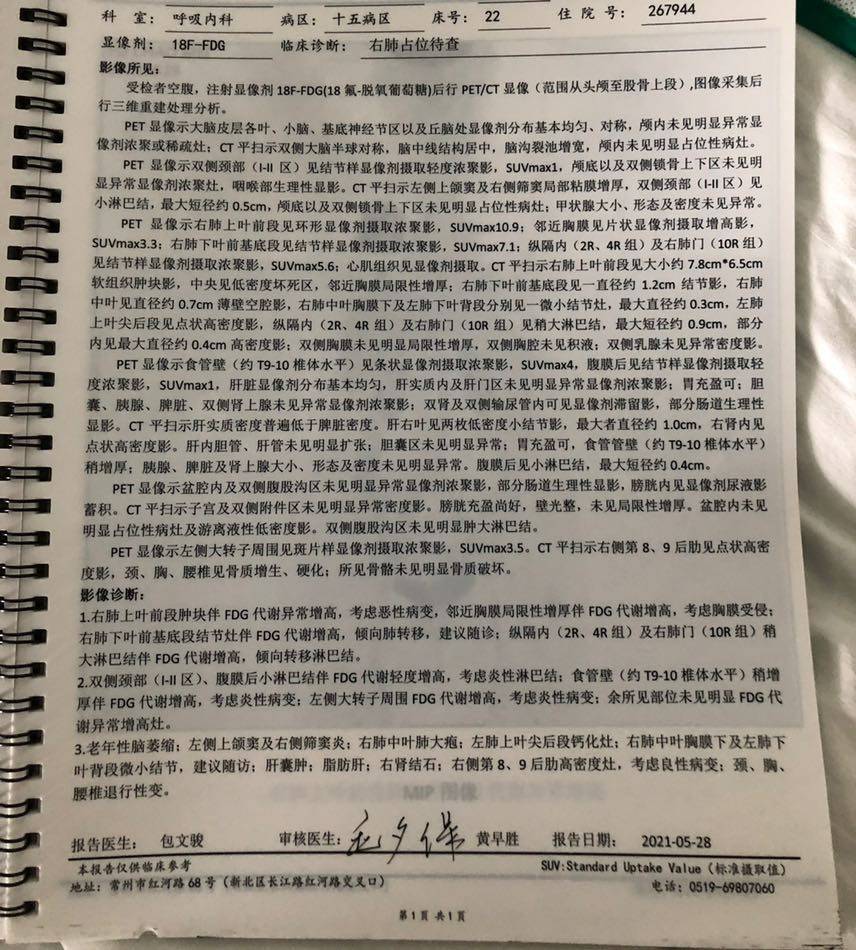 科 室： 呼吸内科 病区： 十五病区 床号： 22 住 院 号： 267944
显像剂： 18F-FDG 临床诊断： 右肺占位待查
影像所见：
受检者空腹，注射显像剂 18F-FDG(18 氟-脱氧葡萄糖)后行 PET/CT 显像（范围从头颅至股骨上段）,图像采集后
行三维重建处理分析。
PET 显像示大脑皮层各叶、小脑、基底神经节区以及丘脑处显像剂分布基本均匀、对称，颅内未见明显异常显
像剂浓聚或稀疏灶；CT 平扫示双侧大脑半球对称，脑中线结构居中，脑沟裂池增宽，颅内未见明显占位性病灶。
PET 显像示双侧颈部（I-II 区）见结节样显像剂摄取轻度浓聚影，SUVmax1，颅底以及双侧锁骨上下区未见明
显异常显像剂浓聚灶，咽喉部生理性显影。CT 平扫示左侧上颌窦及右侧筛窦局部粘膜增厚，双侧颈部（I-II 区）见
小淋巴结，最大短径约 0.5cm，颅底以及双侧锁骨上下区未见明显占位性病灶；甲状腺大小、形态及密度未见异常。
PET 显像示右肺上叶前段见环形显像剂摄取浓聚影，SUVmax10.9；邻近胸膜见片状显像剂摄取增高影，
SUVmax3.3；右肺下叶前基底段见结节样显像剂摄取浓聚影，SUVmax7.1；纵隔内（2R、4R 组）及右肺门（10R 组）
见结节样显像剂摄取浓聚影，SUVmax5.6；心肌组织见显像剂摄取。CT 平扫示右肺上叶前段见大小约 7.8cm*6.5cm
软组织肿块影，中央见低密度坏死区，邻近胸膜局限性增厚；右肺下叶前基底段见一直径约 1.2cm 结节影，右肺
中叶见直径约 0.7cm 薄壁空腔影，右肺中叶胸膜下及左肺下叶背段分别见一微小结节灶，最大直径约 0.3cm，左肺
上叶尖后段见点状高密度影，纵隔内（2R、4R 组）及右肺门（10R 组）见稍大淋巴结，最大短径约 0.9cm，部分
内见最大直径约 0.4cm 高密度影；双侧胸膜未见明显局限性增厚，双侧胸腔未见积液；双侧乳腺未见异常密度影。
PET 显像示食管壁（约 T9-10 椎体水平）见条状显像剂摄取浓聚影，SUVmax4，腹膜后见结节样显像剂摄取轻
度浓聚影，SUVmax1，肝脏显像剂分布基本均匀，肝实质内及肝门区未见明显异常显像剂浓聚影；胃充盈可；胆
囊、胰腺、脾脏、双侧肾上腺未见异常显像剂浓聚影；双肾及双侧输尿管内可见显像剂滞留影，部分肠道生理性
显影。CT 平扫示肝实质密度普遍低于脾脏密度。肝右叶见两枚低密度小结节影，最大者直径约 1.0cm，右肾内见
点状高密度影。肝内胆管、肝管未见明显扩张；胆囊区未见明显异常；胃充盈可，食管管壁（约 T9-10 椎体水平）
稍增厚；胰腺、脾脏及肾上腺大小、形态及密度未见明显异常。腹膜后见小淋巴结，最大短径约 0.4cm。
PET 显像示盆腔内及双侧腹股沟区未见明显异常显像剂浓聚影，部分肠道生理性显影，膀胱内见显像剂尿液影
蓄积。CT 平扫示子宫及双侧附件区未见明显异常密度影。膀胱充盈尚好，壁光整，未见局限性增厚。盆腔内未见
明显占位性病灶及游离液性低密度影。双侧腹股沟区未见明显肿大淋巴结。
PET 显像示左侧大转子周围见斑片样显像剂摄取浓聚影，SUVmax3.5。CT 平扫示右侧第 8、9 后肋见点状高密
度影，颈、胸、腰椎见骨质增生、硬化；所见骨骼未见明显骨质破坏。
影像诊断：
1.右肺上叶前段肿块伴 FDG 代谢异常增高，考虑恶性病变，邻近胸膜局限性增厚伴 FDG 代谢增高，考虑胸膜受侵；
右肺下叶前基底段结节灶伴 FDG 代谢增高，倾向肺转移，建议随诊；纵隔内（2R、4R 组）及右肺门（10R 组）稍
大淋巴结伴 FDG 代谢增高，倾向转移淋巴结。
2.双侧颈部（I-II 区）、腹膜后小淋巴结伴 FDG 代谢轻度增高，考虑炎性淋巴结；食管壁（约 T9-10 椎体水平）稍增
厚伴 FDG 代谢增高，考虑炎性病变；左侧大转子周围 FDG 代谢增高，考虑炎性病变；余所见部位未见明显 FDG 代
谢异常增高灶。
3.老年性脑萎缩；左侧上颌窦及右侧筛窦炎；右肺中叶肺大疱；左肺上叶尖后段钙化灶；右肺中叶胸膜下及左肺下
叶背段微小结节，建议随访；肝囊肿；脂肪肝；右肾结石；右侧第 8、9 后肋高密度灶，考虑良性病变；颈、胸、
腰椎退行性变。
MIP 图像
报告医生： 包文骏 审核医生： 黄早胜 报告日期： 2021-05-28
本报告仅供临床参考 SUV:Standard Uptake Value（标准摄取值）
地址：常州市红河路 68 号（新北区长江路红河路交叉口） 电话：0519-69807060
第 1 页 共 1 页